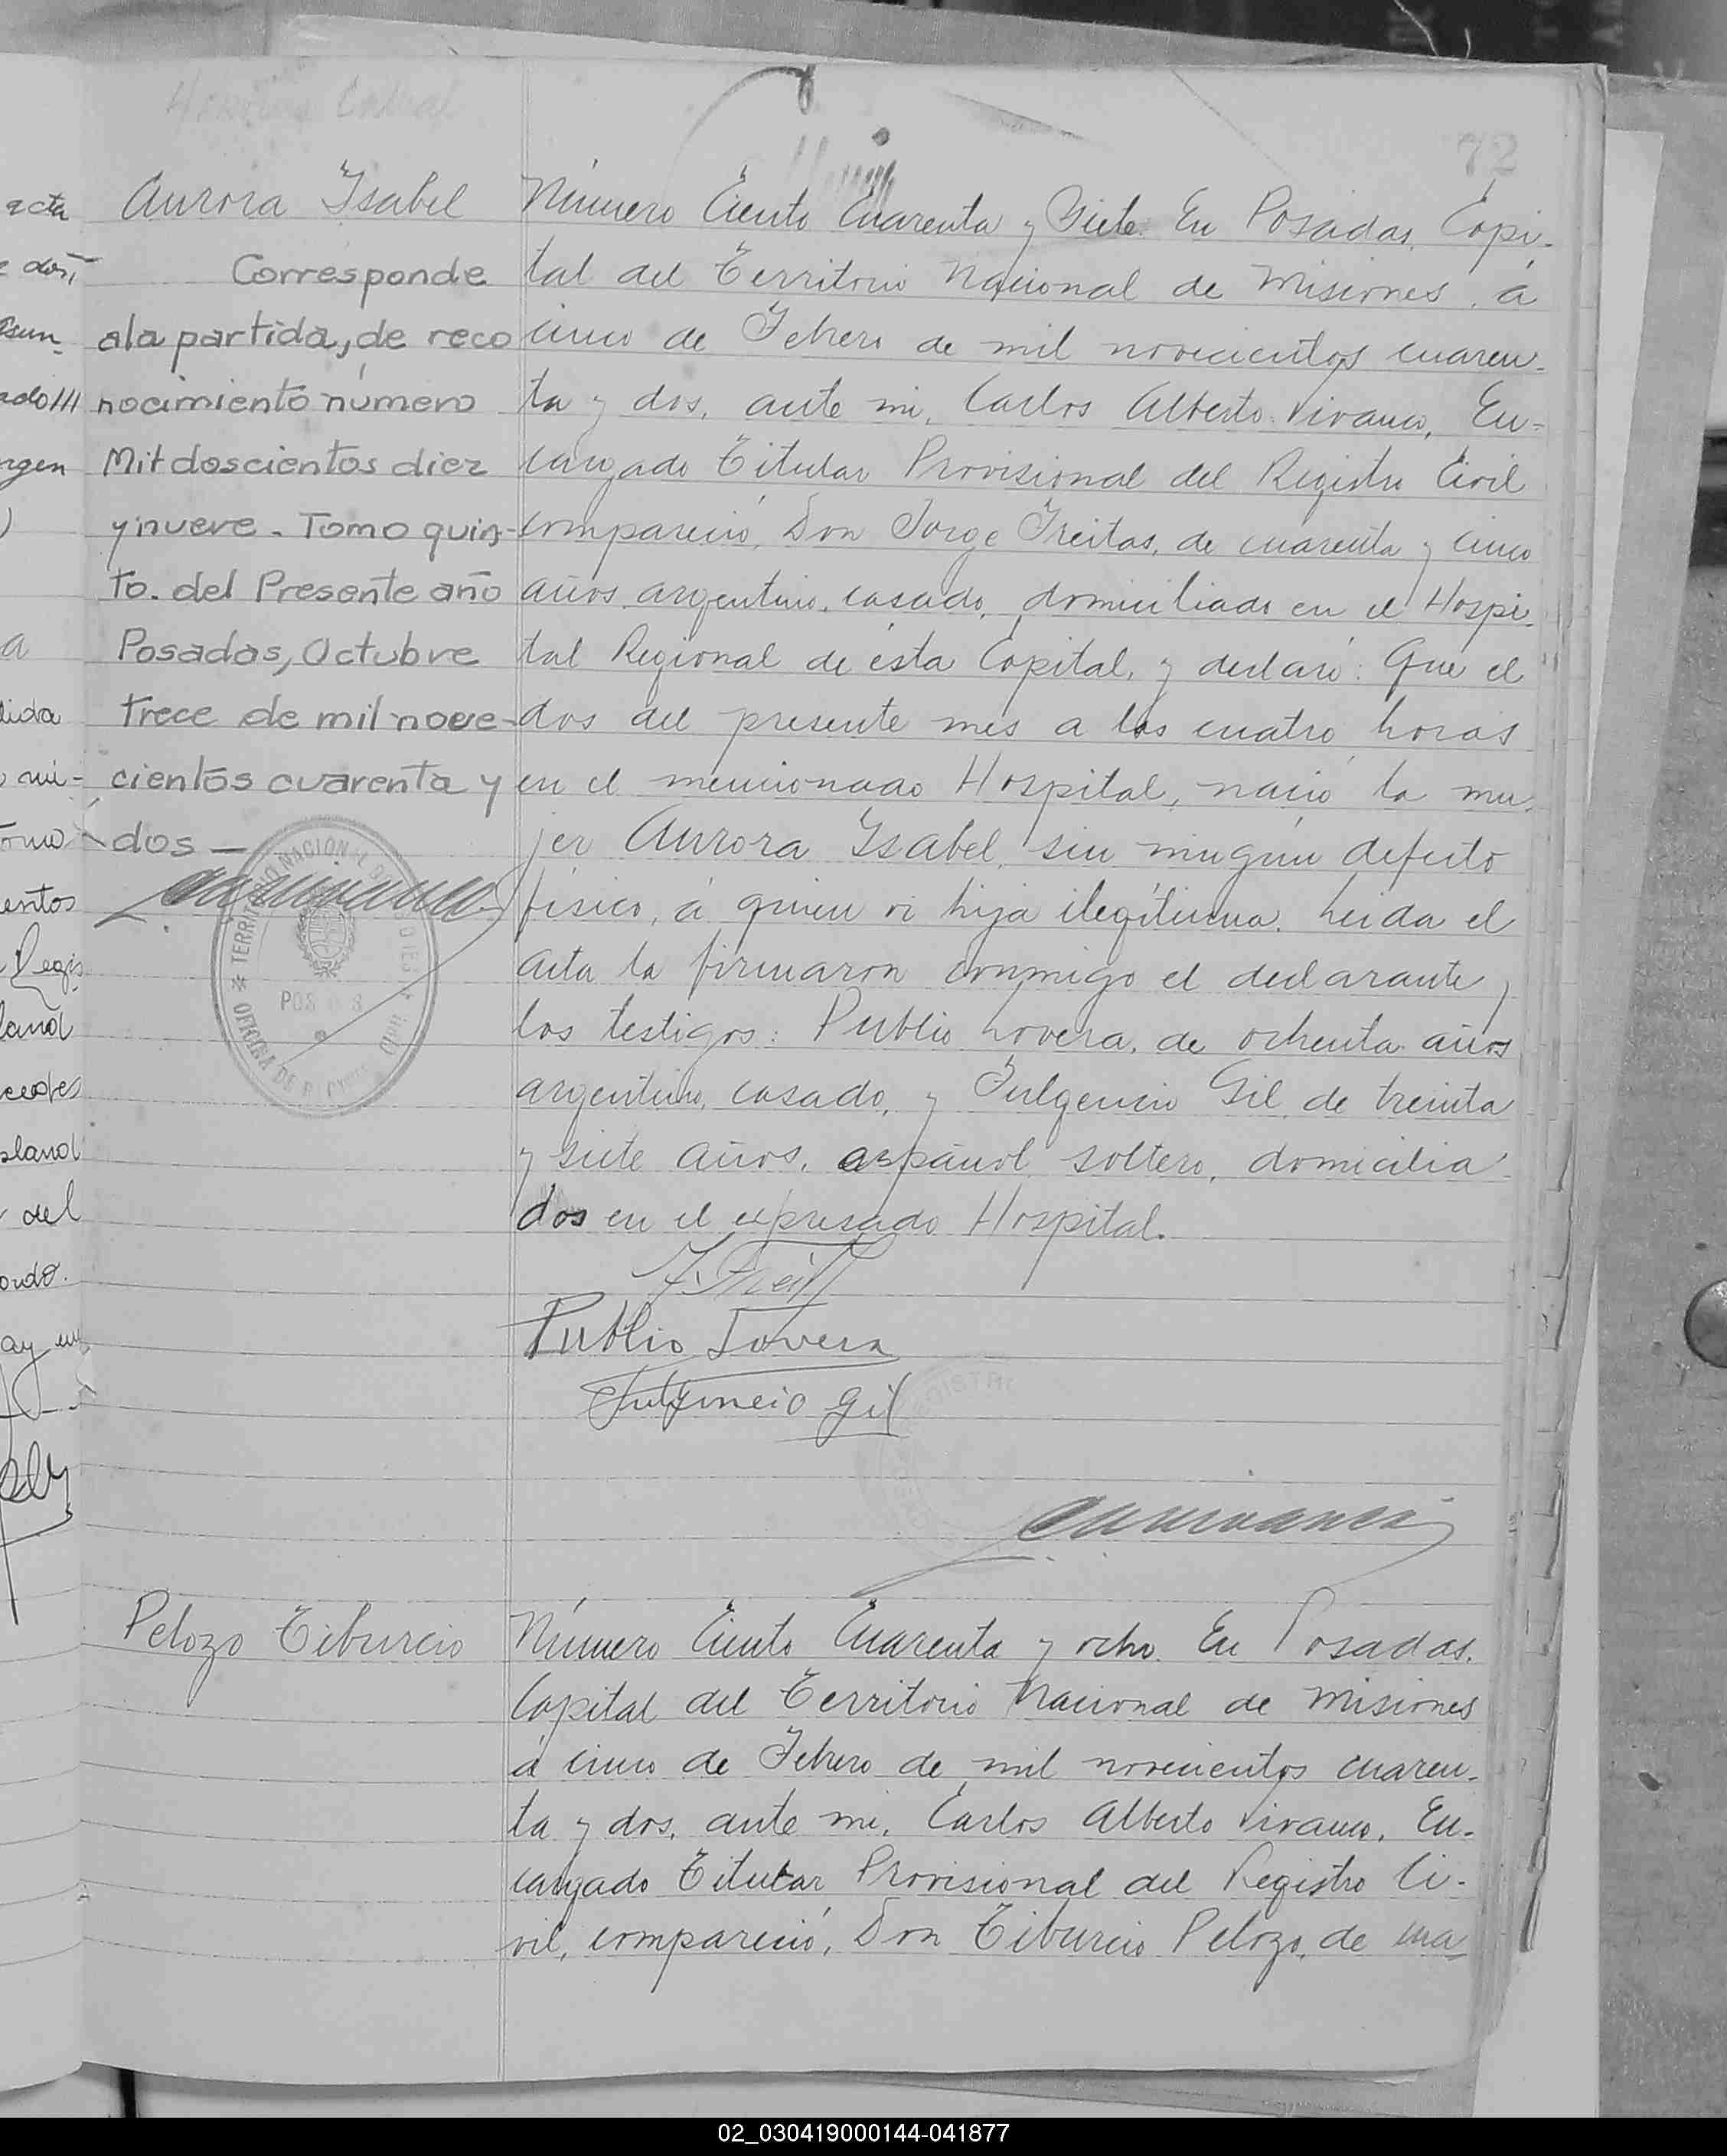 72
Aurora Isabel
Corresponde
ala partida, de reco
nocimiento número
Mil doscientos diez
y nueve - Tomo quin-
to. del Presente año
Posadas, Octubre
trece de mil nove-
cientos cuarenta y
dos —
Número Ciento Cuarenta y Siete. En Posadas, Capi-
tal del Territorio Nacional de Misiones, á
cinco de Febrero de mil novecientos cuaren-
ta y dos, ante mi, Carlos Alberto Vivanco, En-
cargado Titular Provisional del Registro Civil
compareció, Don Jorge Freitas, de cuarenta y cinco
años, argentino, casado, domiciliado en el Hospi-
tal Regional de ésta Capital, y declaró: Que el
dos del presente mes a las cuatro horas
en el mencionado Hospital, nació la mu-
jer Aurora Isabel, sin ningún defecto
físico, á quien vi hija ilegítima. Leida el
acta la firmaron conmigo el declarante y
los testigos: Publio Lovera, de ochenta años
argentino, casado, y Fulgencio Gil, de treinta
y siete años, español, soltero, domicilia
dos en el expresado Hospital.
Publio Lovera
Fulgencio Gil
Pelozo Tiburcio
Número Ciento Cuarenta y ocho. En Posadas,
Capital del Territorio Nacional de Misiones
á cinco de Febrero de mil novecientos cuaren-
ta y dos, ante mi, Carlos Alberto Vivanco, En-
cargado Titular Provisional del Registro Ci-
vil, compareció, Don Tiburcio Pelozo, de cua-
acta
ento
del
02_030419000144-041877